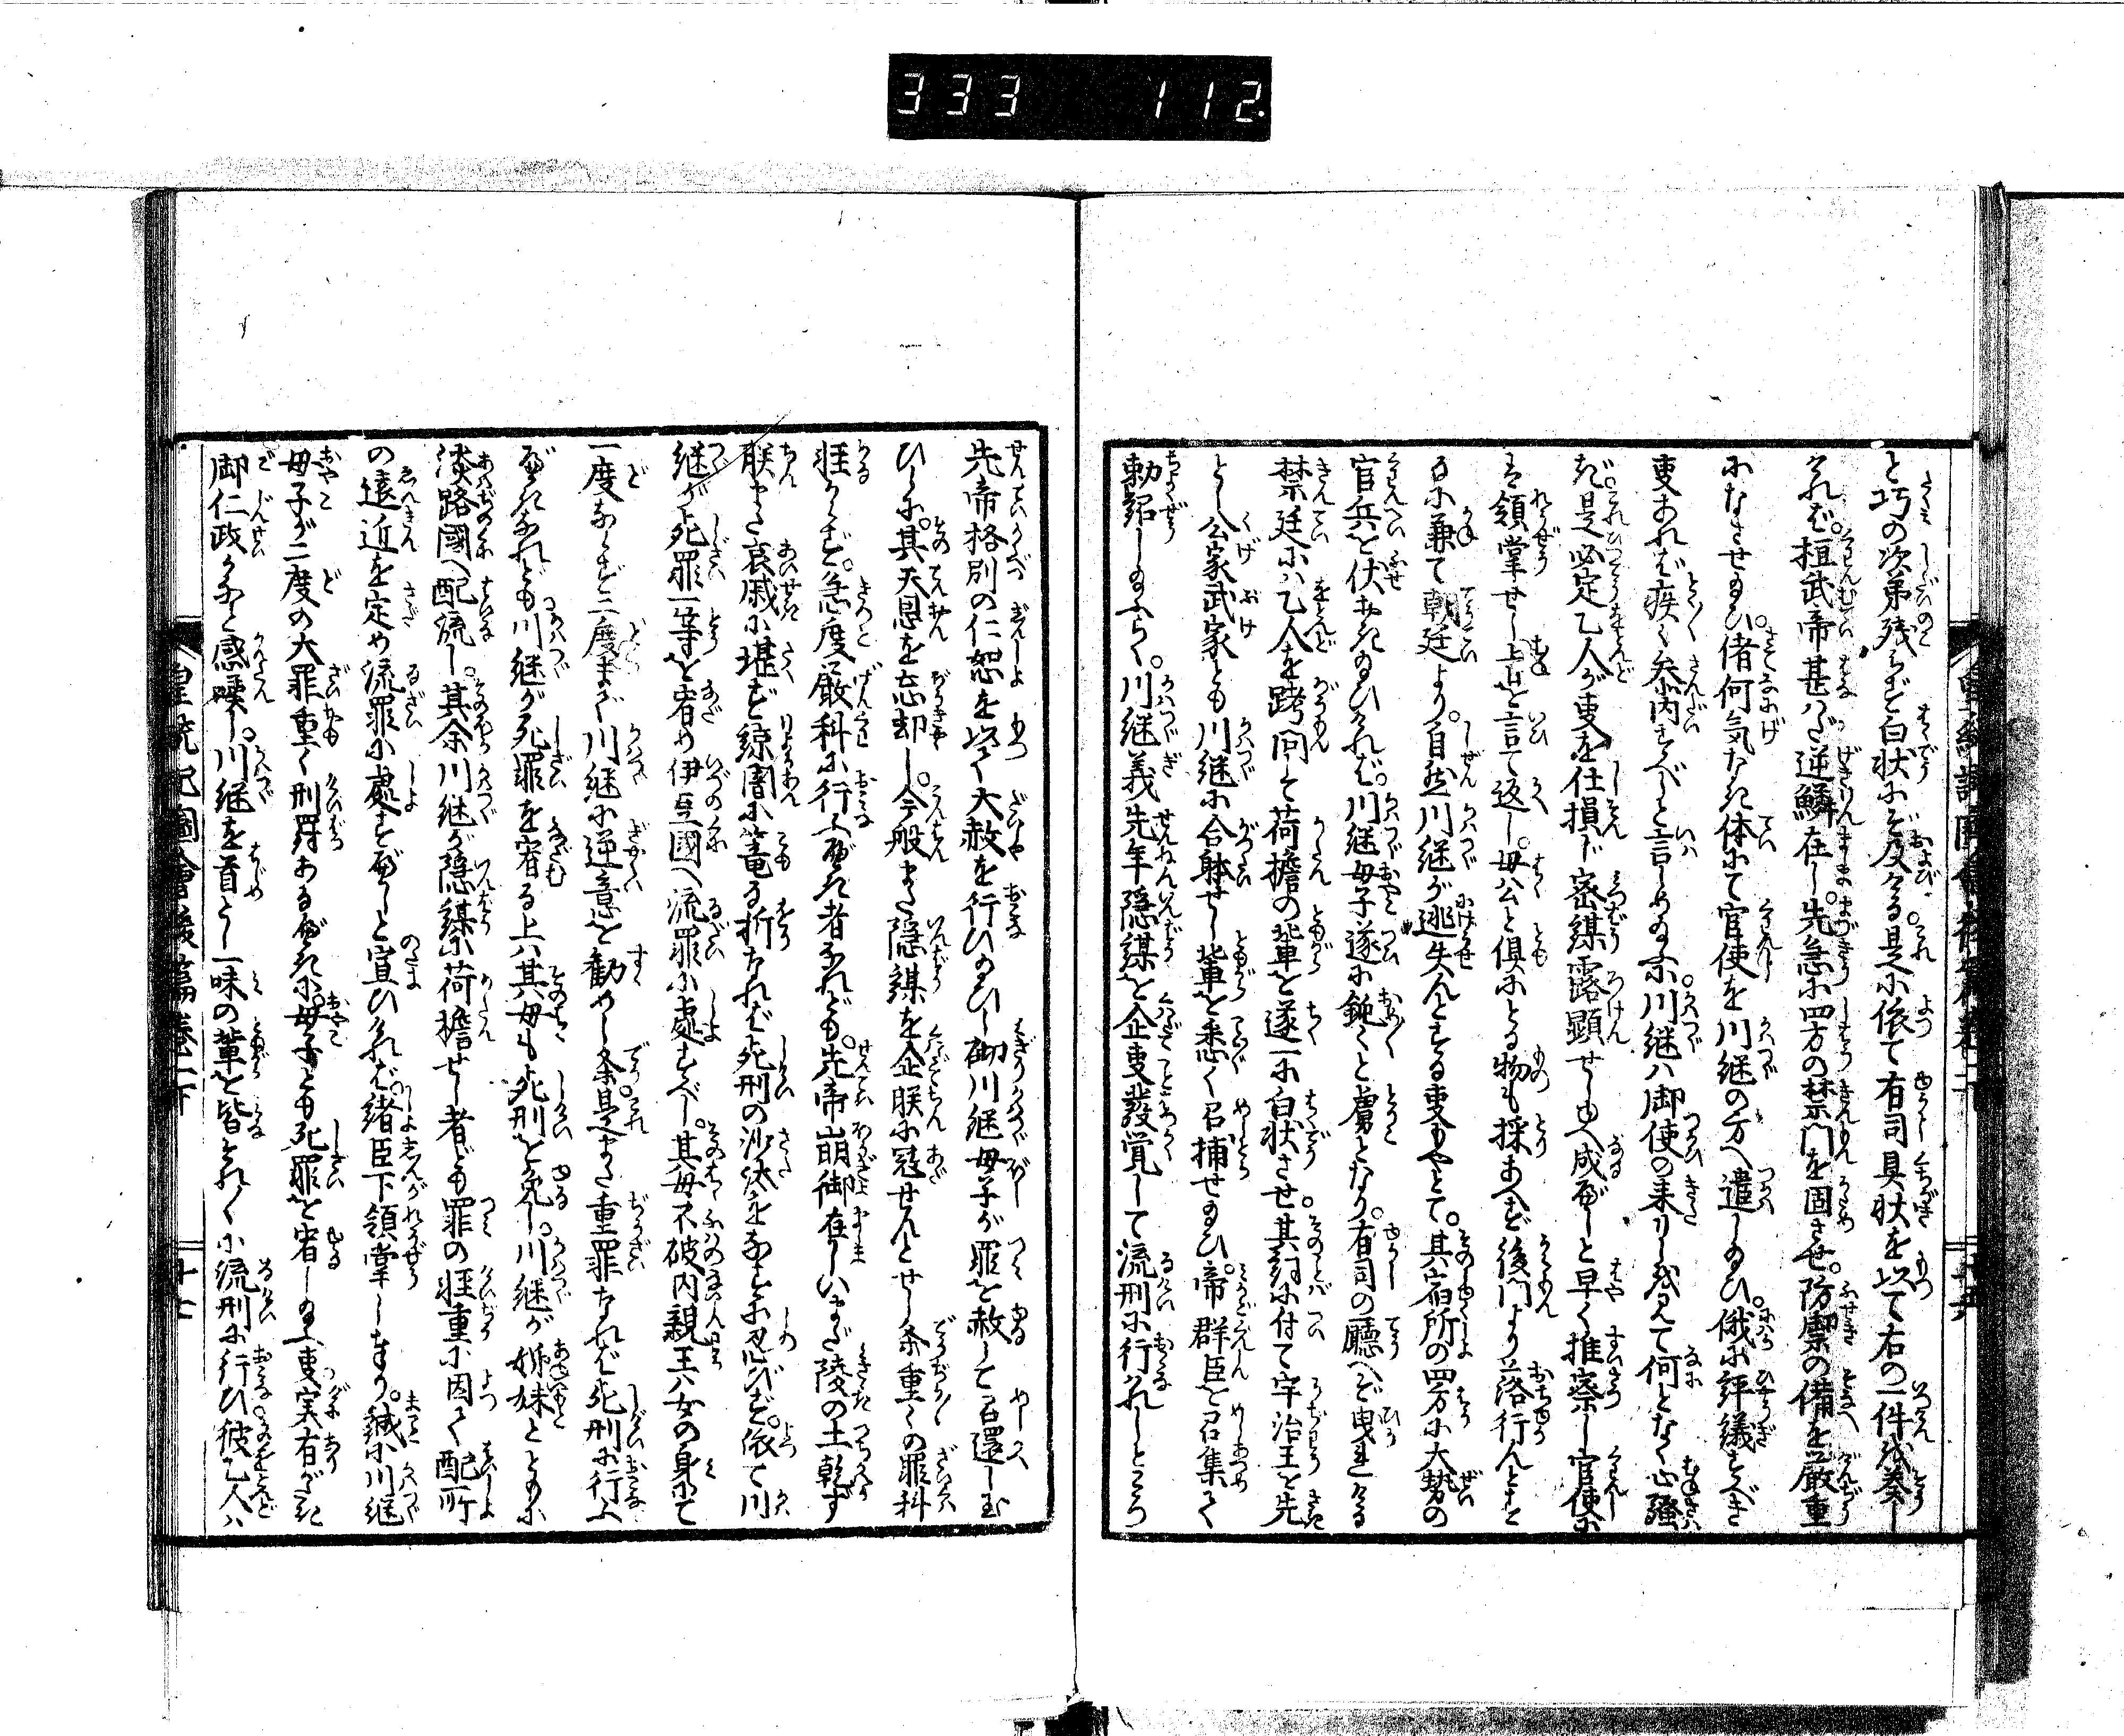 333 112
と巧の次第残らず白状にぞ及ける是に依て有司具状を以て右の一件を奏し
ければ。桓武帝甚だ逆鱗在し。先急に四方の禁門を固させ。防禦の備を厳重
になさせ給ひ。偖何気なき体にて官使を川継の方へ遣し給ひ。俄に評議すべき
事あれば疾く参内すべしと言しめ給ふに川継ハ御使の来りしを見て何となく心騒
ぎ。是必定乙人が事を仕損ド密謀露顕せしゆへ成べしと早く推察し官使に
は領掌せし上を言て返し。母公と倶にとる物も採あへず後門より落行んとす
るに兼て朝廷より。自然川継が逃失んとする事もやとて。其宿所の四方に大勢の
官兵を伏せおき給ひければ。川継母子遂に鈍くと虜となり。有司の廳へぞ曳れける
禁廷にハ乙人を拷問して荷擔の輩を遂一に白状させ。其詞に付て宇治王を先
とし公家武家とも川継に合躰せし輩を悉く召捕せ給ひ。帝群臣を召集て
勅詔し給ふらく。川継義先年隠謀を企事発覚して流刑に行れしところ
先帝格別の仁恕を以て大赦を行ひ給ひし砌川継母子が罪を赦して召還し玉
ひしに。其天恩を忘却し。今般また隠謀を企朕に冦せんとせし条重々の罪科
軽からず。急度厳科に行ふべき者なれども。先帝崩御在していまだ陵の土乾ず
朕また哀戚に堪ず諒闇に篭る折なれば死刑の沙汰をなすに忍びず。依て川
継が死罪一等を宥め伊豆國へ流罪に處すべし。其母不破内親王ハ女の身にて
一度ならず二度まで川継に逆意を勧めし条是また重罪なれば死刑に行ふ
べきなれども川継が死罪を宥る上ハ其母も死刑を免し。川継が姉妹とともに
淡路國へ配流し。其余川継が隠謀に荷擔せし者ども罪の軽重に因て配所
の遠近を定め流罪に處すべしと宣ひければ。緒臣下領掌しまゐり。誠に川継
母子が二度の大罪重く刑罸あるべきに。母子とも死罪を宥し給ふ事実有がたき
御仁政かなと感嘆し。川継を首とし一味の輩を皆それ〳〵に流刑に行ひ彼乙人ハ
皇統記圖會後篇巻二下
十七